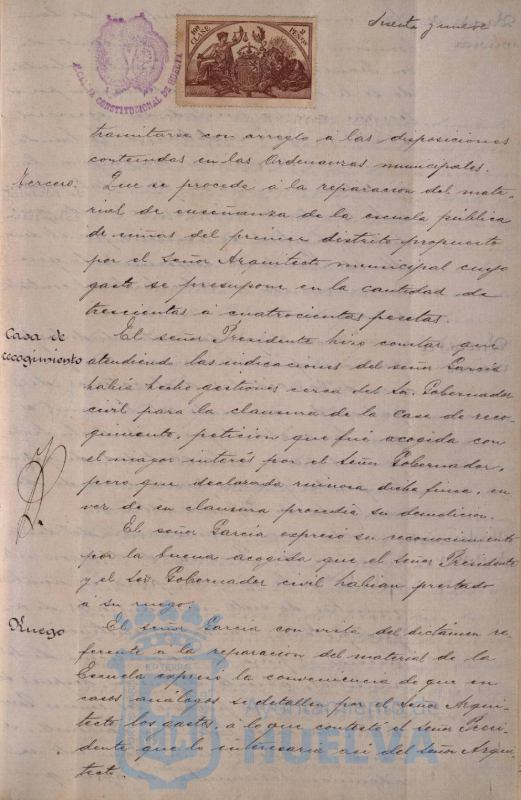 Sesenta y nueve
ALCALDIA CONSTITUCIONAL DE HUELVA
10ª CLASE
2 PESETAS
tramitarse con arreglo á las disposiciones
contenidas en las Ordenanzas municipales.
Tercero: Que se proceda á la reparacion del mate-
rial de enseñanza de la escuela pública
de niñas del primer distrito propuesto
por el Señor Arquitecto municipal cuyo
gasto se presupone en la cantidad de
trescientas á cuatrocientas pesetas.
Casa de
recogimiento
El señor Presidente hizo constar que
atendiendo las indicaciones del señor García
habia hecho gestiones cerca del Sr. Gobernador
civil para la clausura de la Casa de reco-
gimiento, peticion que fué acogida con
el mayor interés por el Señor Gobernador,
pero que declarada ruinosa dicha finca, en
vez de su clausura procedia su demolicion.
El señor García expresó su reconocimiento
por la buena acogida que el señor Presidente
y el Sor. Gobernador civil habian prestado
á su ruego.
Ruego
El señor García con vista del dictámen re-
ferente á la reparacion del material de la
Escuela expresó la conveniencia de que en
casos análogos se detallen por el Señor Arqui-
tecto los gastos, á lo que contestó el Señor Presi-
dente que lo interesaria asi del Señor Arqui-
tecto.
Ayuntamiento de
HUELVA